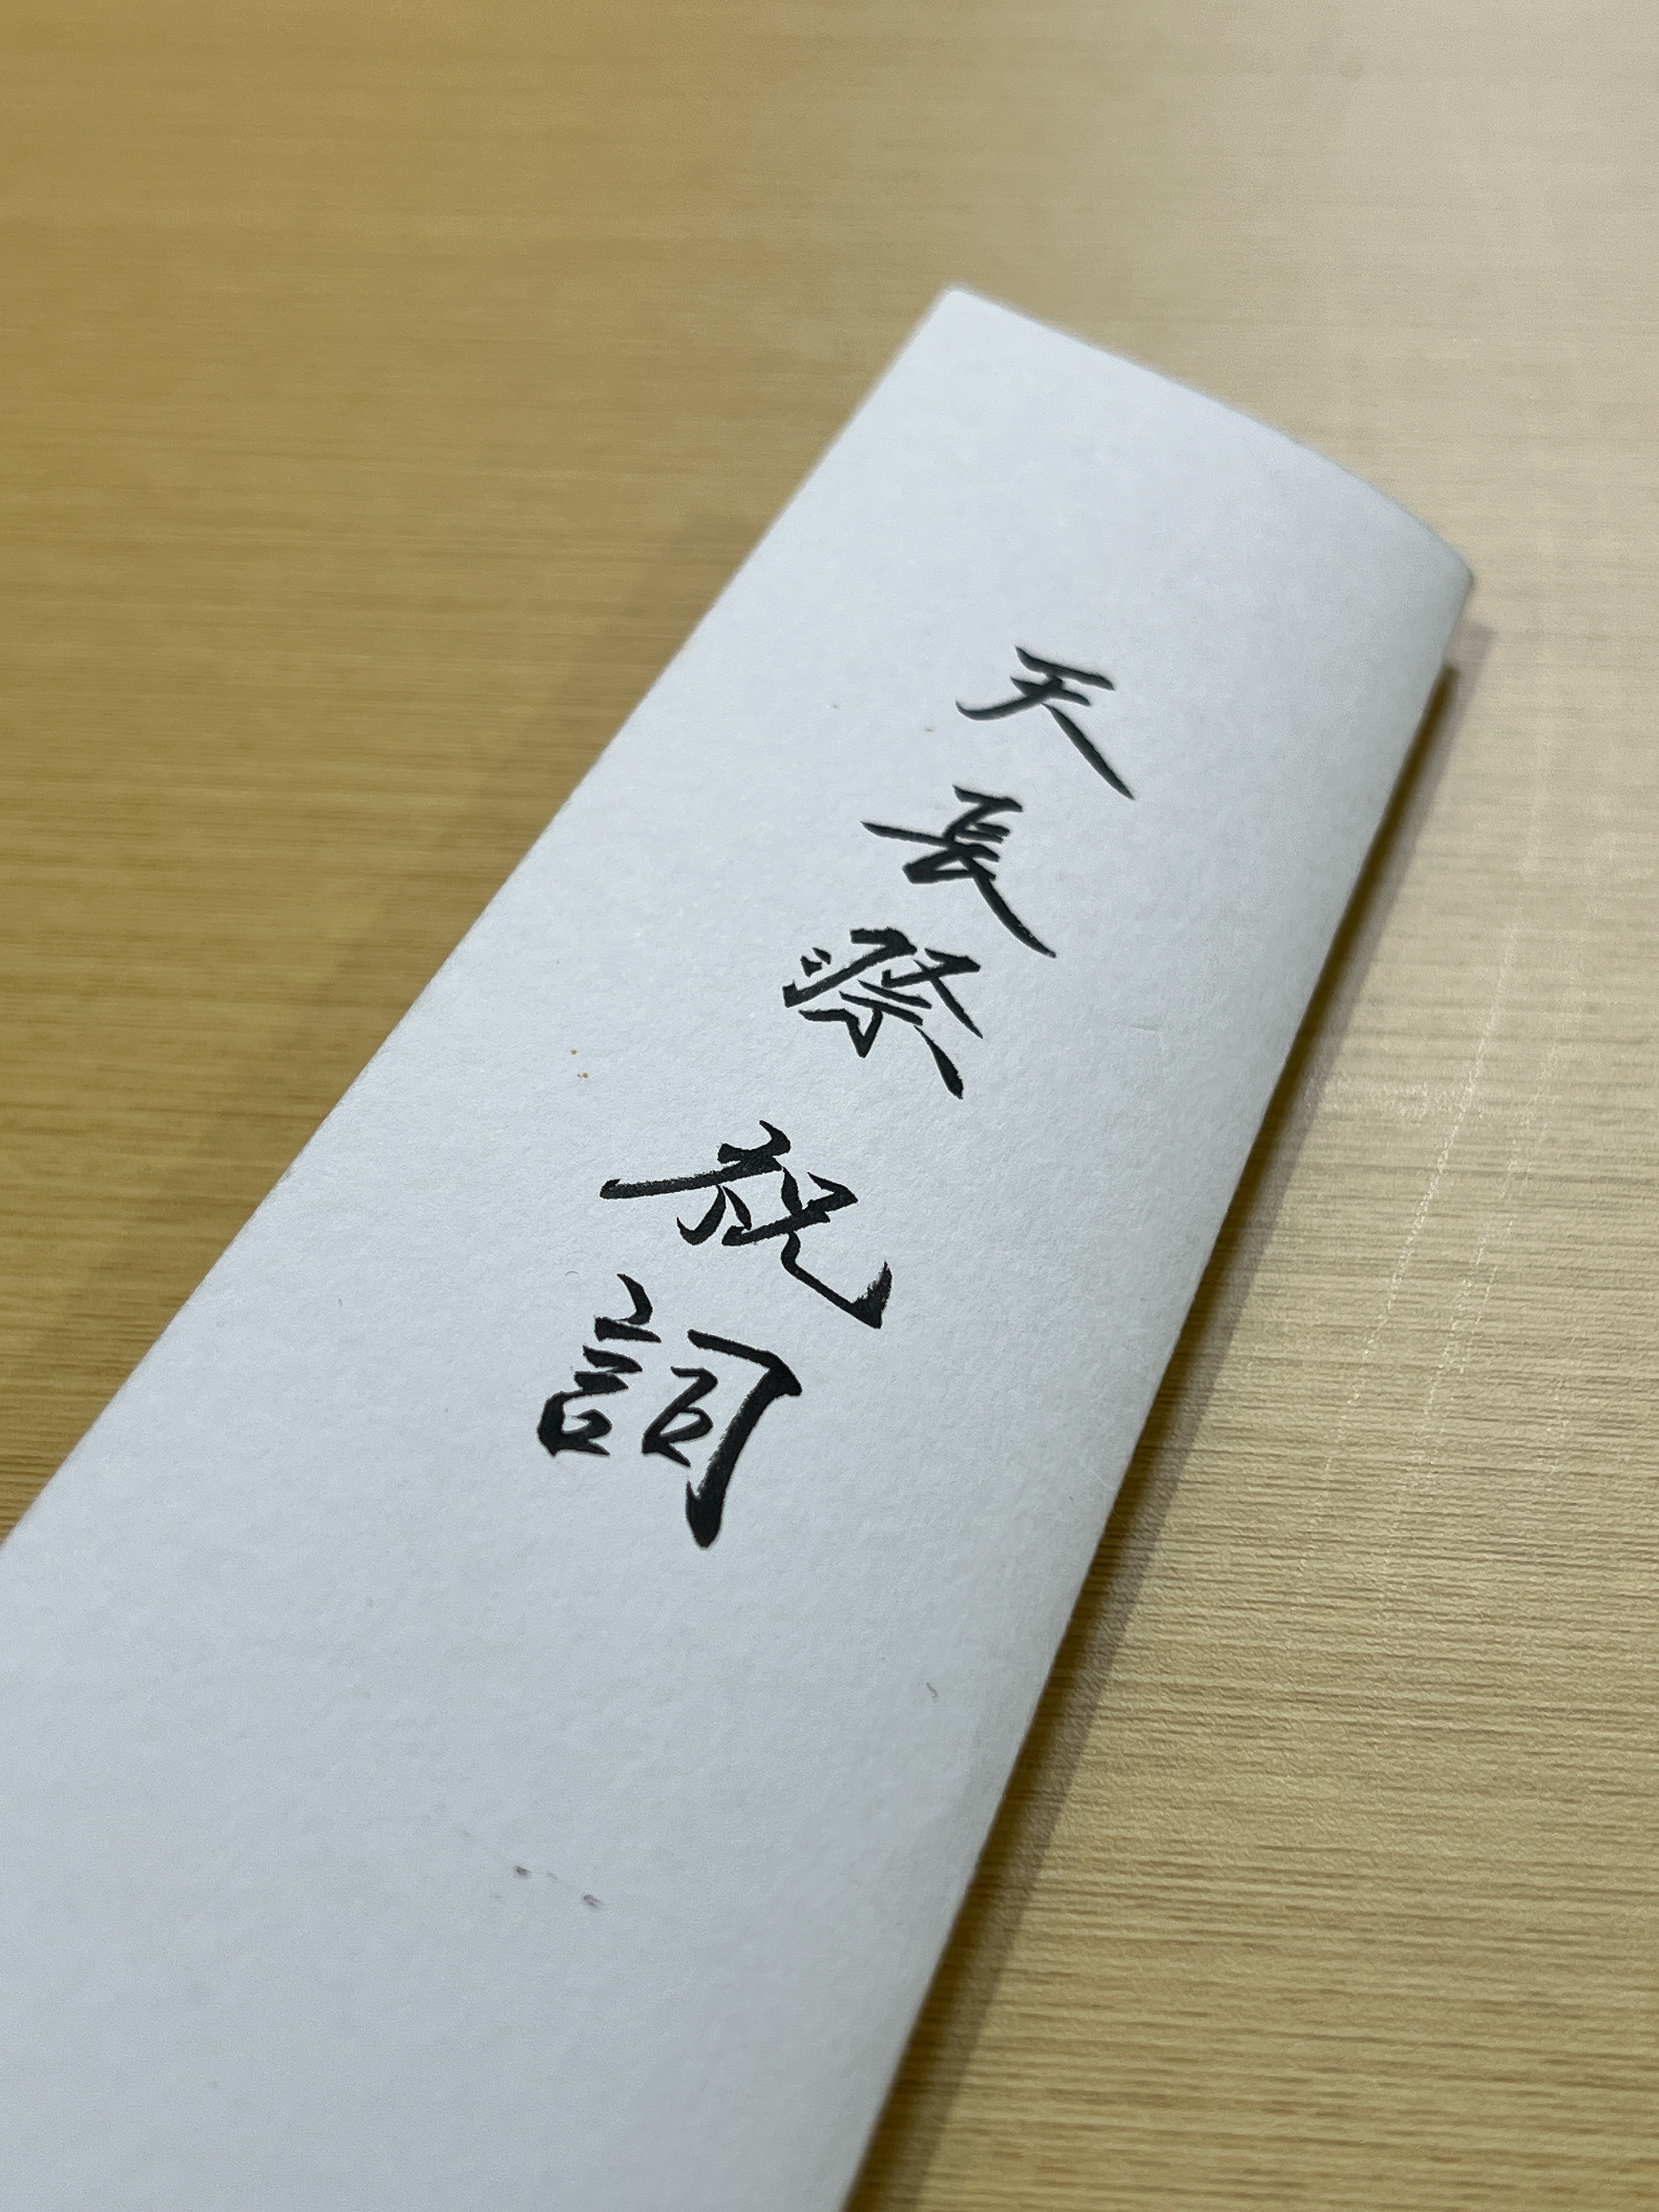 天長祭祝詞